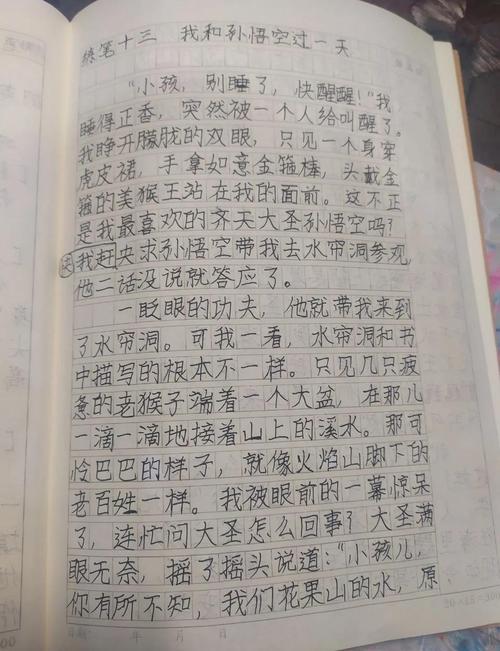 练笔十三 我和孙悟空过一天
“小孩，别睡了，快醒醒！”我
睡得正香，突然被一个人给叫醒了。
我睁开朦胧的双眼，只见一个身穿
虎皮裙，手拿如意金箍棒，头戴金
箍的美猴王站在我的面前。这不正
是我最喜欢的齐天大圣孙悟空吗？
我赶央求孙悟空带我去水帘洞参观，
他二话没说就答应了。
一眨眼的功夫，他就带我来到
了水帘洞。可我一看，水帘洞和书
中描写的根本不一样。只见几只疲
惫的老猴子端着一个大盆，在那儿
一滴一滴地接着山上的溪水。那可
怜巴巴的样子，就像火焰山脚下的
老百姓一样。我被眼前的一幕惊呆
了，连忙问大圣怎么回事？大圣满
眼无奈，摇了摇头说道：“小孩儿，
你有所不知，我们花果山的水，原
日期： 年 月 日